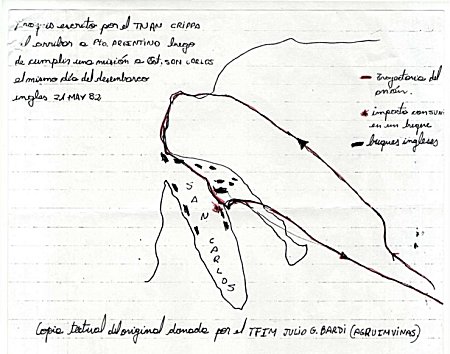 escrito por el TNAN CRIPPA
al arribar a Pto. ARGENTINO luego
de cumplir una misión a Est. SAN CARLOS
el mismo día del desembarco
ingles 21 MAY 82
trayectoria del
avión.
impacto
en un buque
buques ingleses
SAN
CARLOS
Copia textual del original donada por el TFIM JULIO G. BARDI (AGRUIMVINAS)